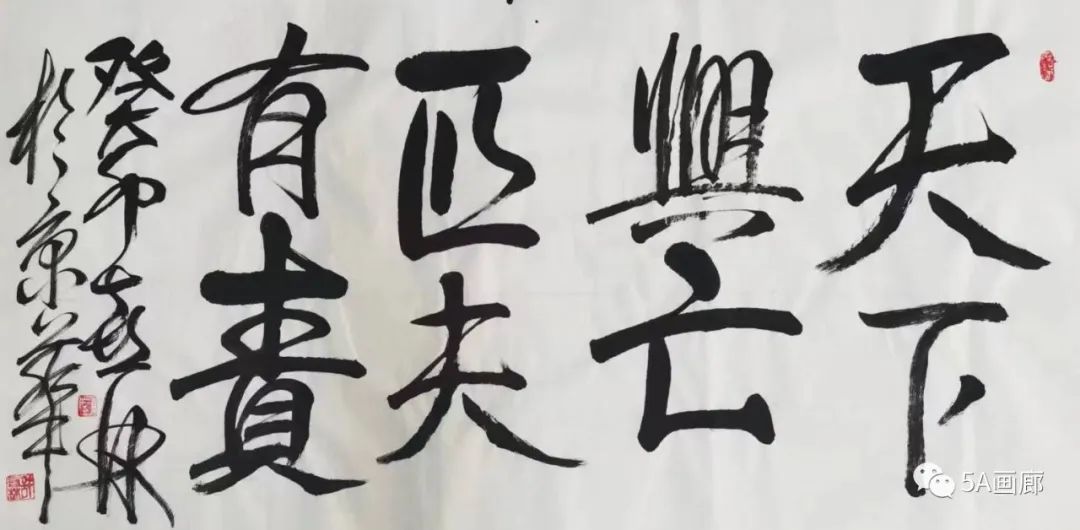 天下
興亡
匹夫
有責
癸卯春林
於京華
5A画廊